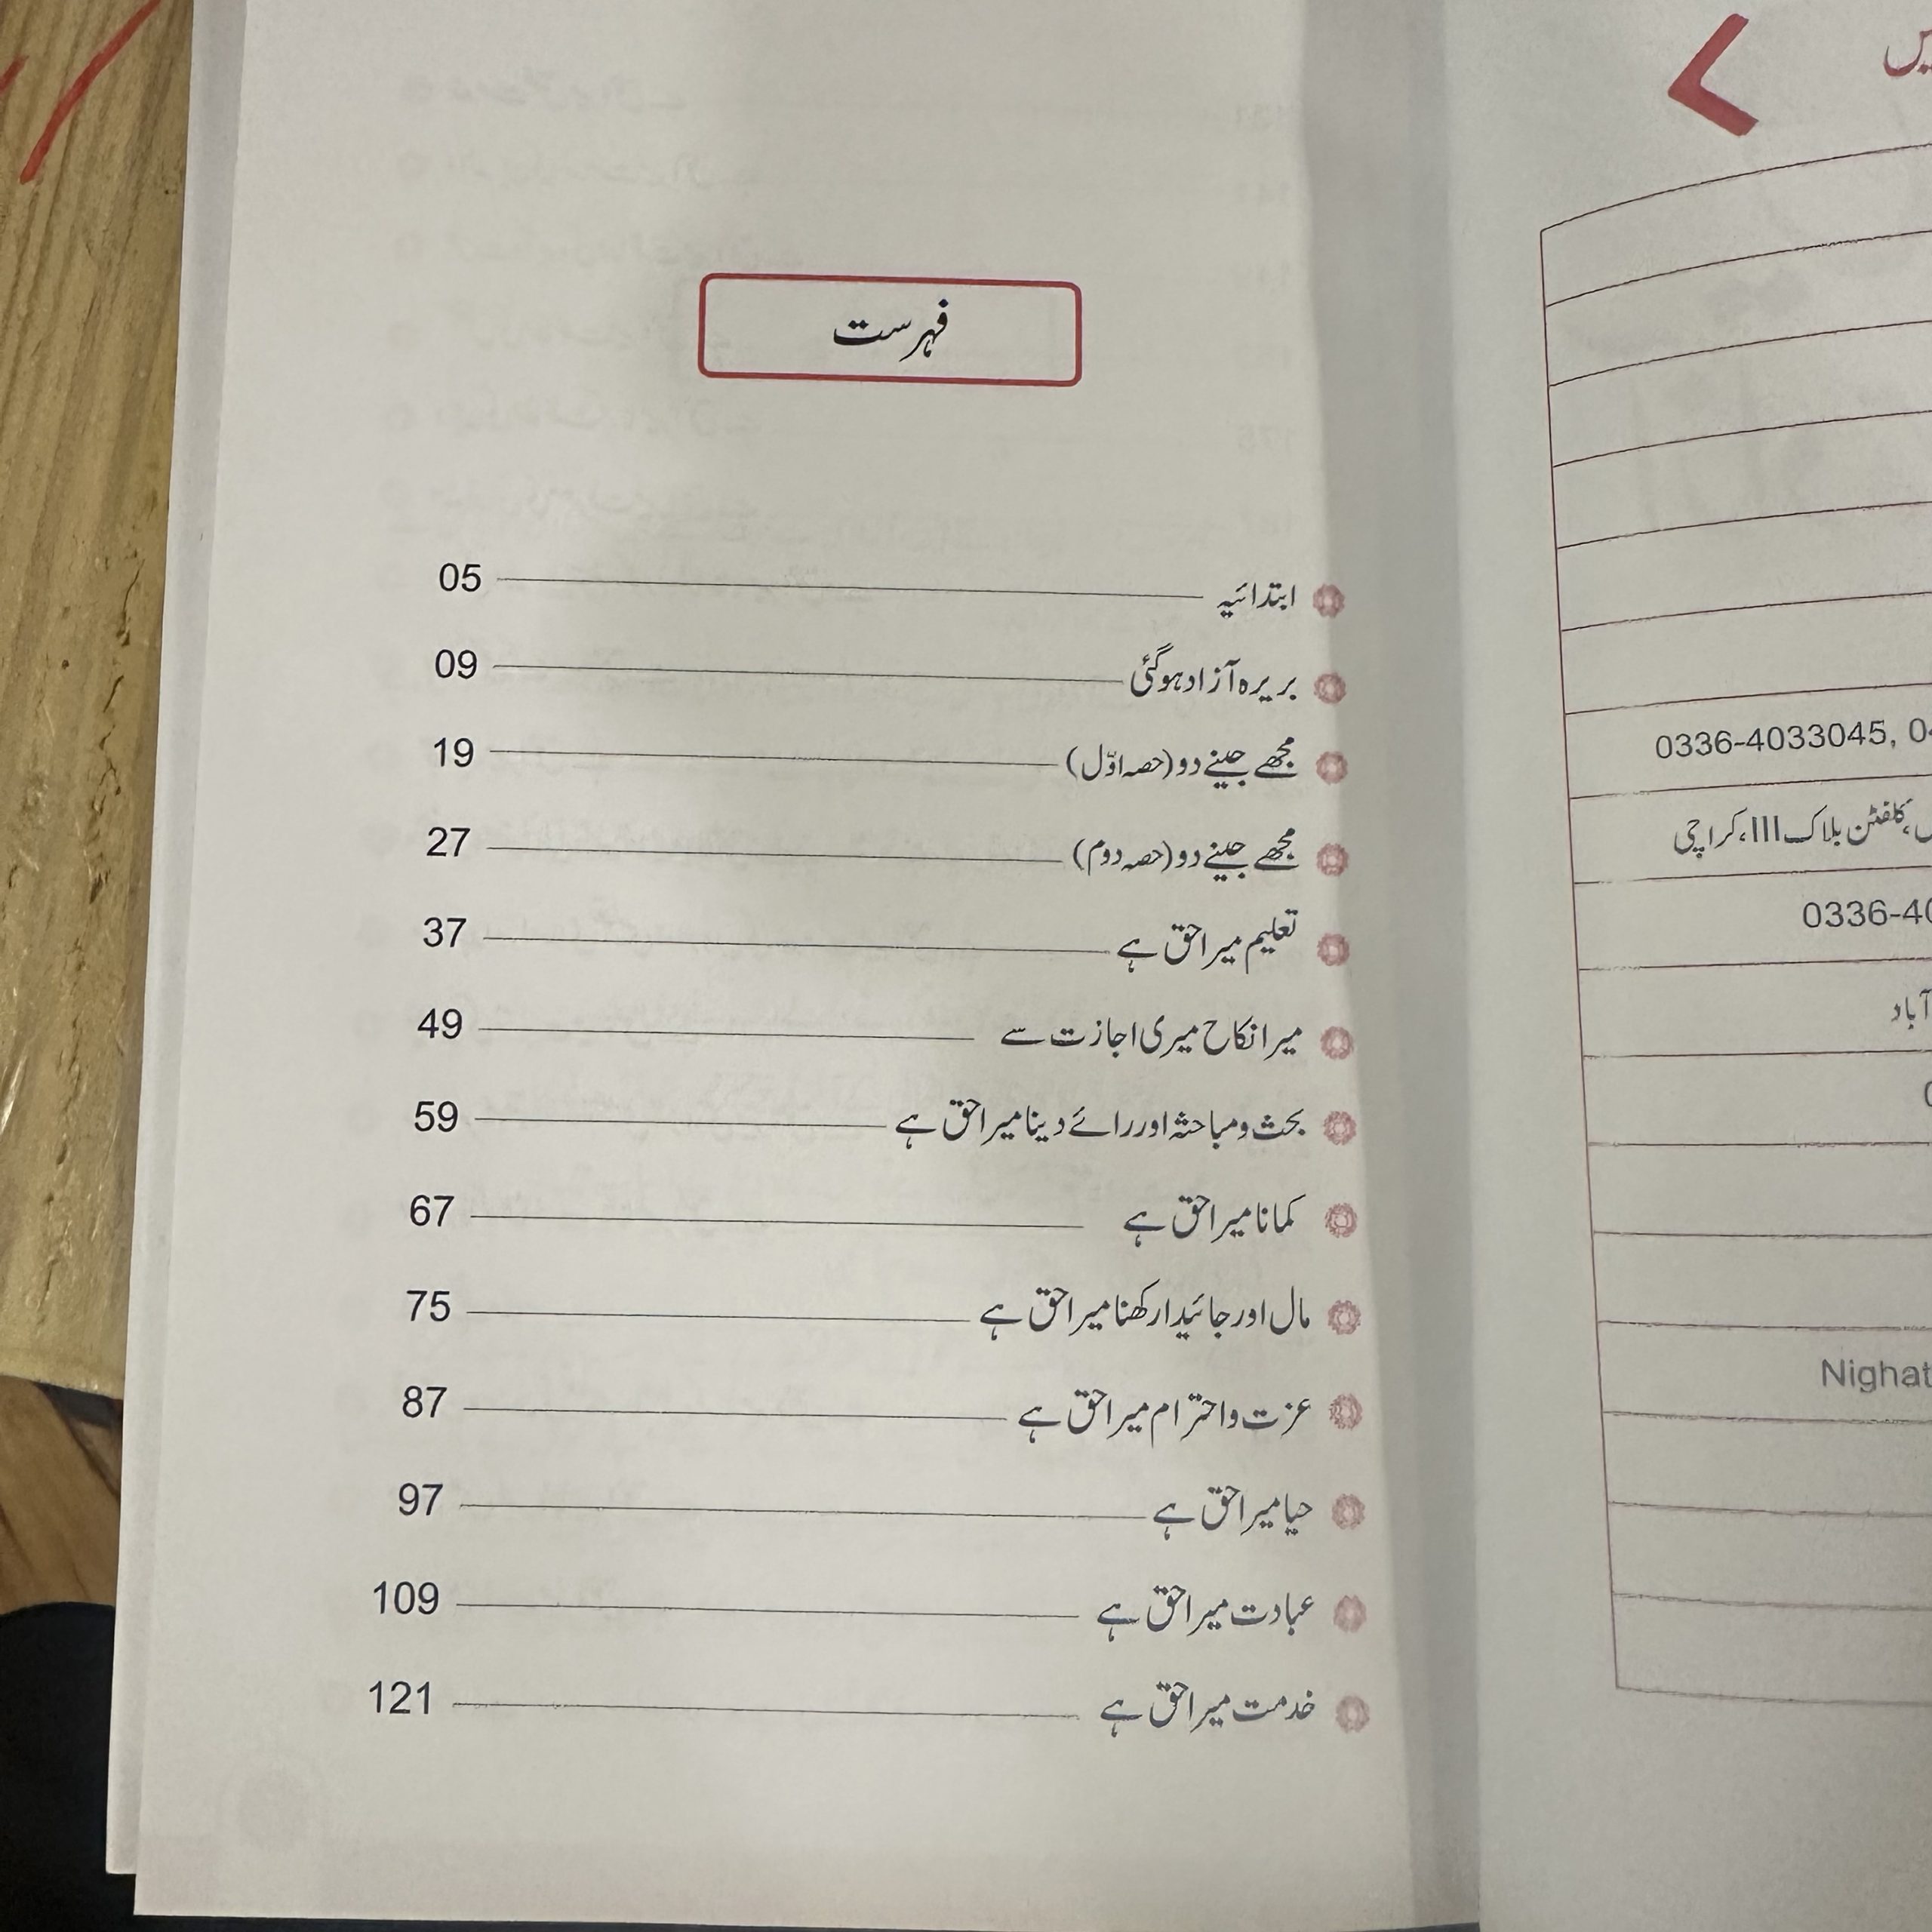 یں
0336-4033045, 04
،کلفٹن بلاک III،کراچی
0336-40
آباد
Nighat
فہرست
ابتدائیہ 05
بریرہ آزاد ہوگئی 09
مجھے جینے دو (حصہ اوّل) 19
مجھے جینے دو (حصہ دوم) 27
تعلیم میرا حق ہے 37
میرا نکاح میری اجازت سے 49
بحث و مباحثہ اور رائے دینا میرا حق ہے 59
کمانا میرا حق ہے 67
مال اور جائیدار رکھنا میرا حق ہے 75
عزت و احترام میرا حق ہے 87
حیا میرا حق ہے 97
عبادت میرا حق ہے 109
خدمت میرا حق ہے 121